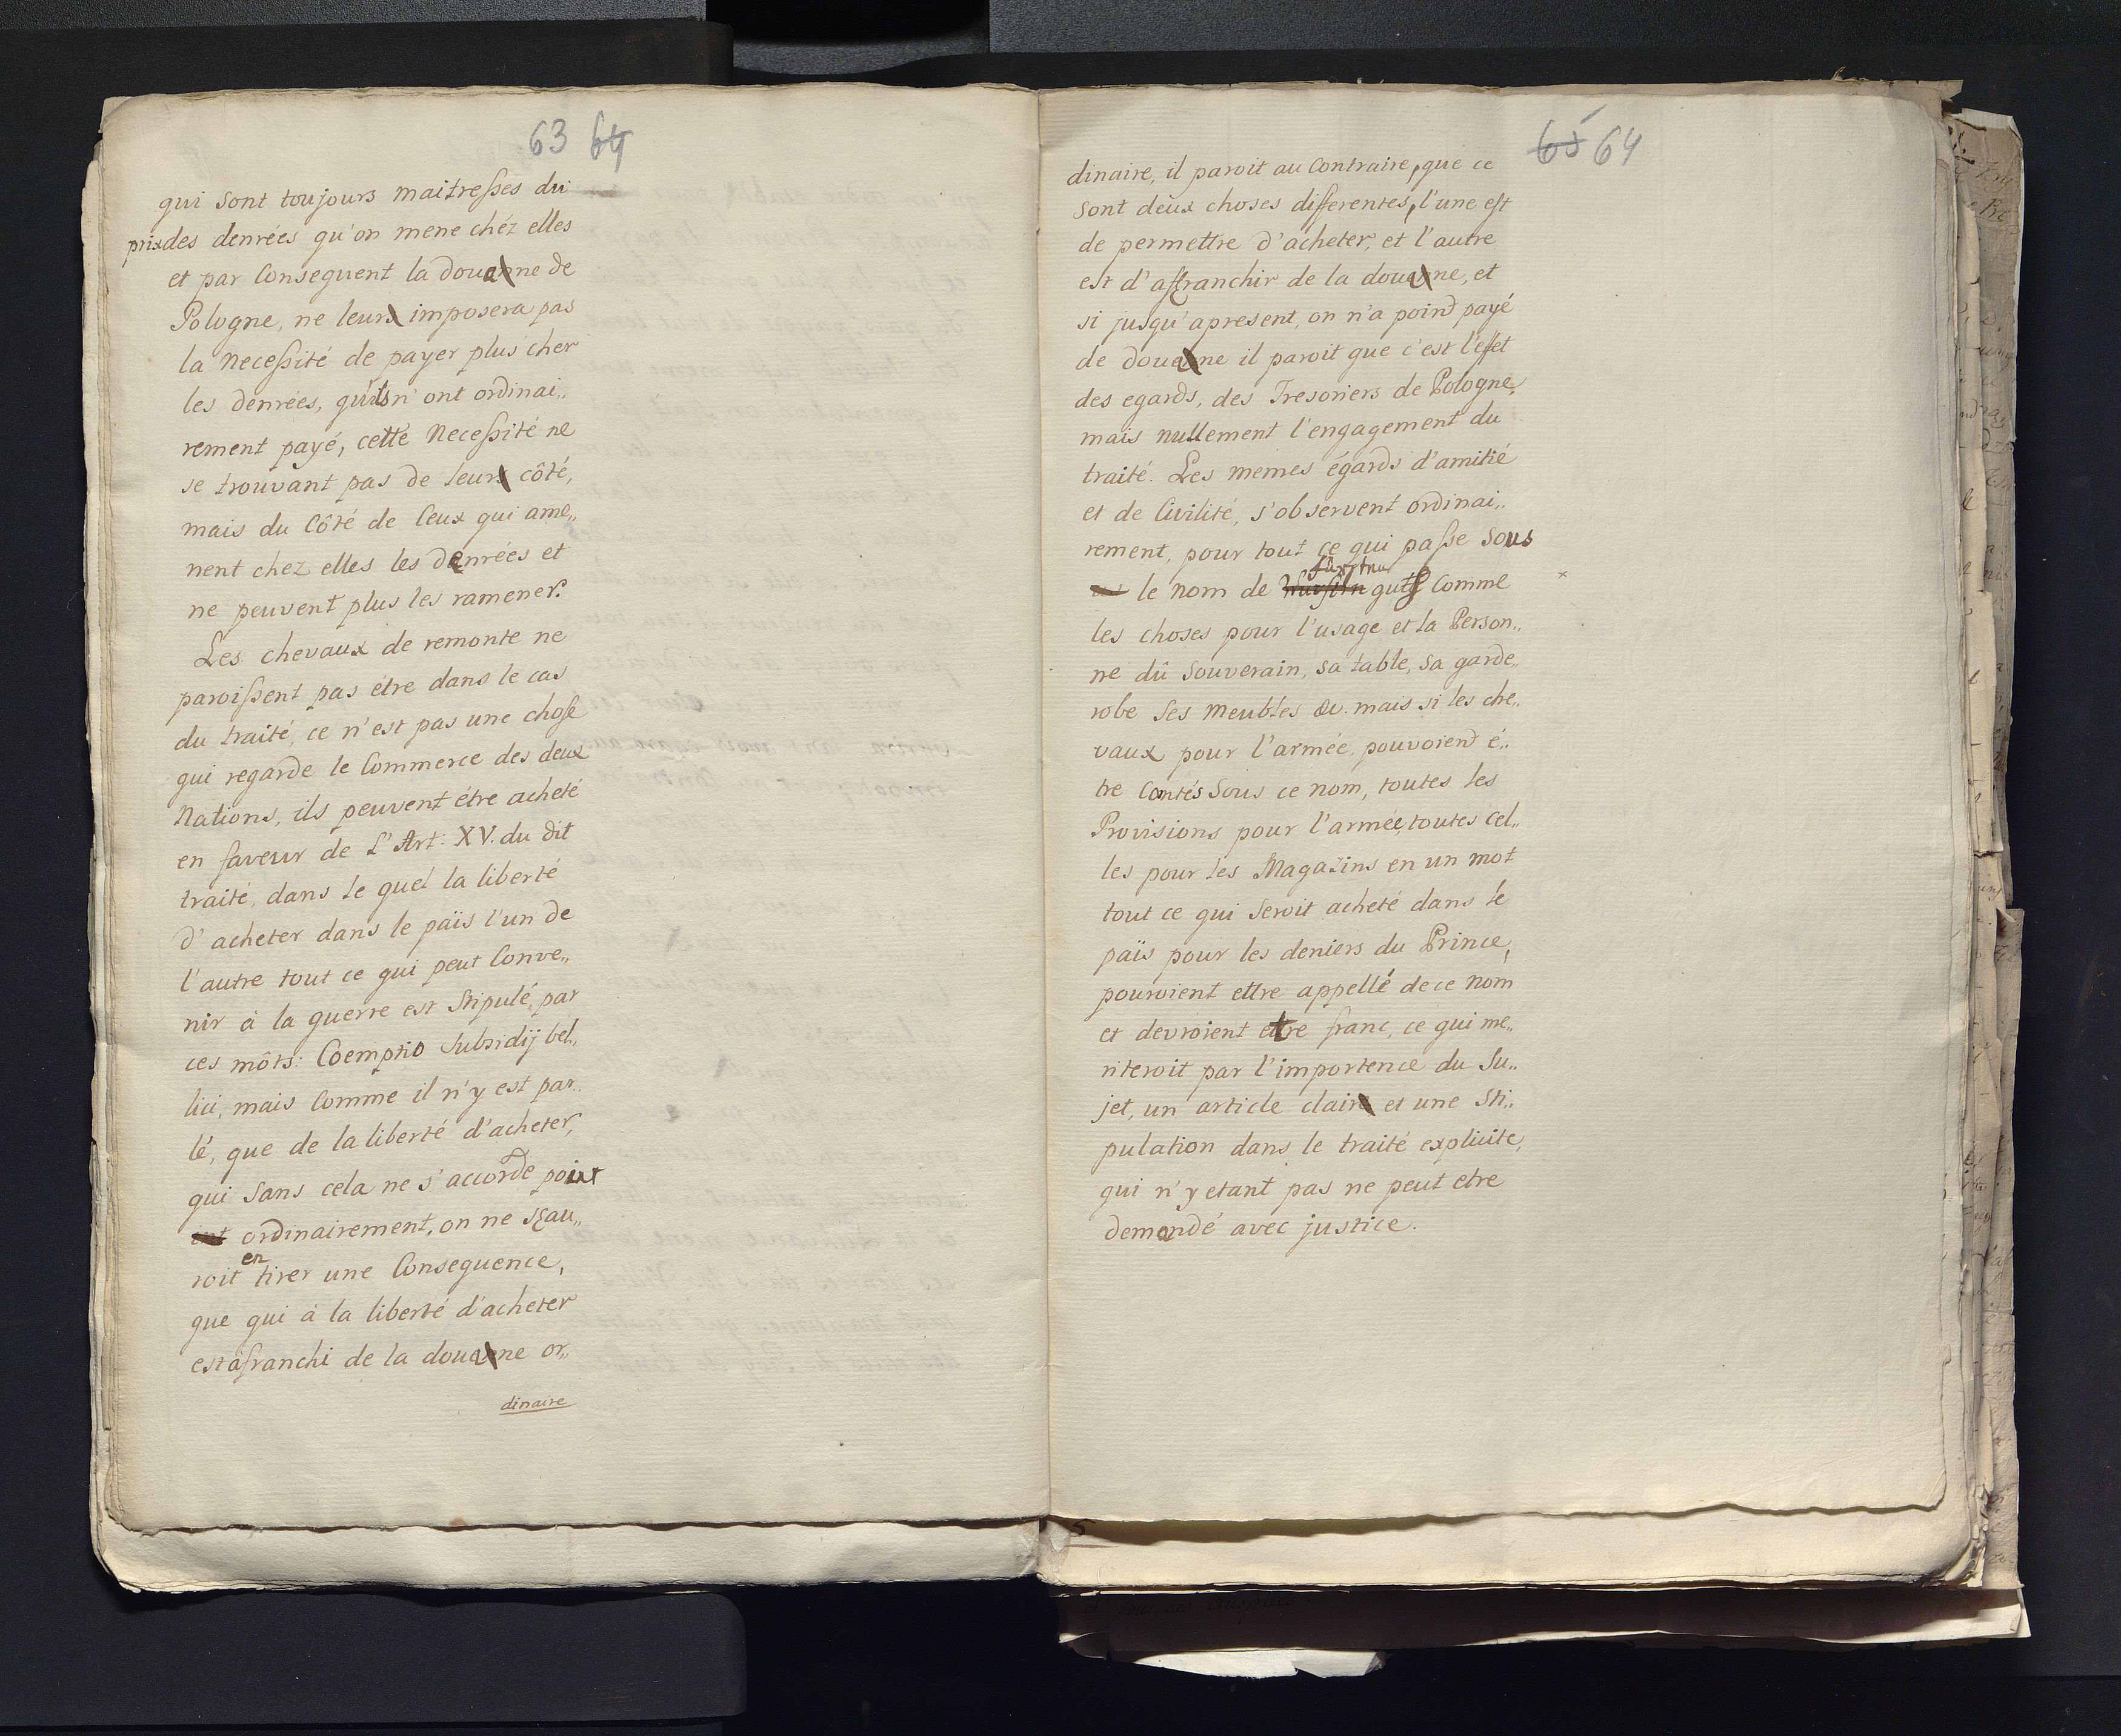 63 64
qui sont toujours maitresses du
prix des denrées qu'on mene chéz elles
et par Consequent la douane de
Pologne, ne leur imposera pas
la Necessité de payer plus cher
les denrées, qu'ils n'ont ordinai„
rement payé, cette Necessité ne
se trouvant pas de leur côté,
mais du Côté de Ceux qui ame„
nent chez elles les denrées et
ne peuvent plus les ramener.
Les chevaux de remonte ne
paroissent pas étre dans le cas
du traité, ce n'est pas une chose
qui regarde le Commerce des deux
Nations, ils peuvent étre acheté
en faveur de L'Art: XV. du dit
traité, dans le quel la liberté
d'acheter dans le païs l'un de
l'autre tout ce qui peut Conve„
nir à la guerre est Stipulé, par
ces môts: Coemptio Subsidij bel„
lici, mais Comme il n'y est par„
lé, que de la liberté d'acheter,
qui Sans cela ne s'accorde point
ordinairement, on ne sçau„
roit en tirer une Consequence,
que qui à la liberté d'acheter
est afranchi de la douane or„
dinaire
65 64
dinaire, il paroit au Contraire, que ce
sont deux choses differentes, l'une est
de permettre d'acheter, et l'autre
est d'affranchir de la douane, et
si jusqu'apresent, on n'a point payé
de douane il paroit que c'est l'effet
des egards, des Tresoriers de Pologne,
mais nullement l'engagement du
traité. Les memes égards d'amitié
et de Civilité, s'observent ordinai„
rement, pour tout ce qui passe sous
le nom de fürsten gutt Comme
les choses pour l'usage et la Person„
ne dû Souverain, sa table, sa garde„
robe Ses Meubles &c. mais si les che„
vaux pour l'armée, pouvoient é„
tre Contés Sous ce nom, toutes les
Provisions pour l'armée, toutes cel„
les pour les Magazins en un mot
tout ce qui Seroit acheté dans le
païs pour les deniers du Prince,
pouroient ettre appellé de ce Nom
et devroient etre franc, ce qui me„
riteroit par l'importence du Su„
jet, un article clair et une Sti„
pulation dans le traité explicite,
qui n'y etant pas ne peut etre
demandé avec justice.